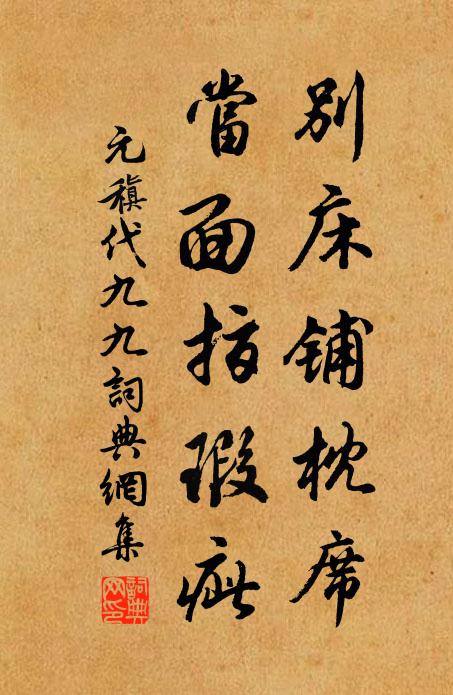 別床鋪枕席
當面指瑕疵
元稹代九九詞典網集
詞典
网印